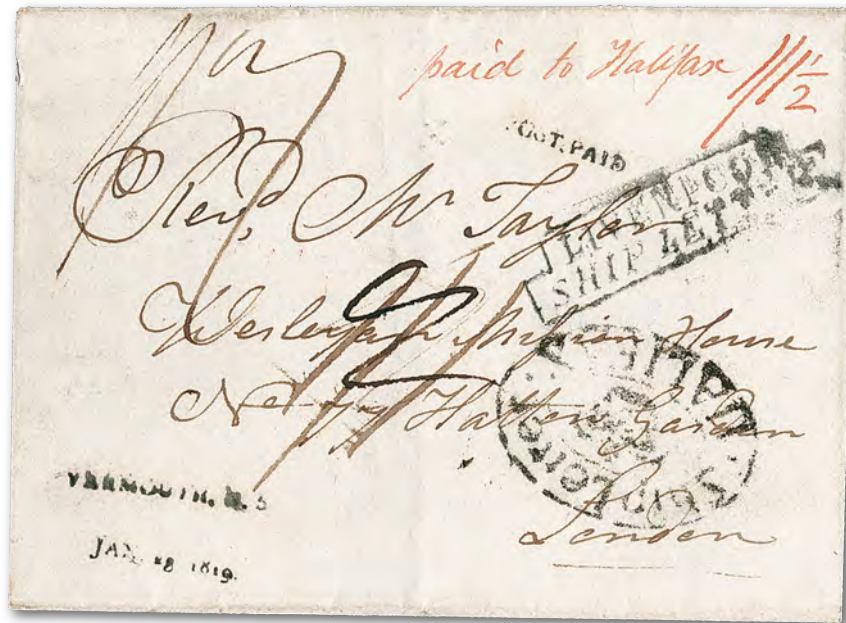 paid to Halifax 1/1 1/2
POST. PAID
LIVERPOOL
SHIP LETTER
Revd. Mr Taylor
Wesleyan Mission House
No 77 Hatton Garden
London
YARMOUTH, N. S
JAN. 28 1819.